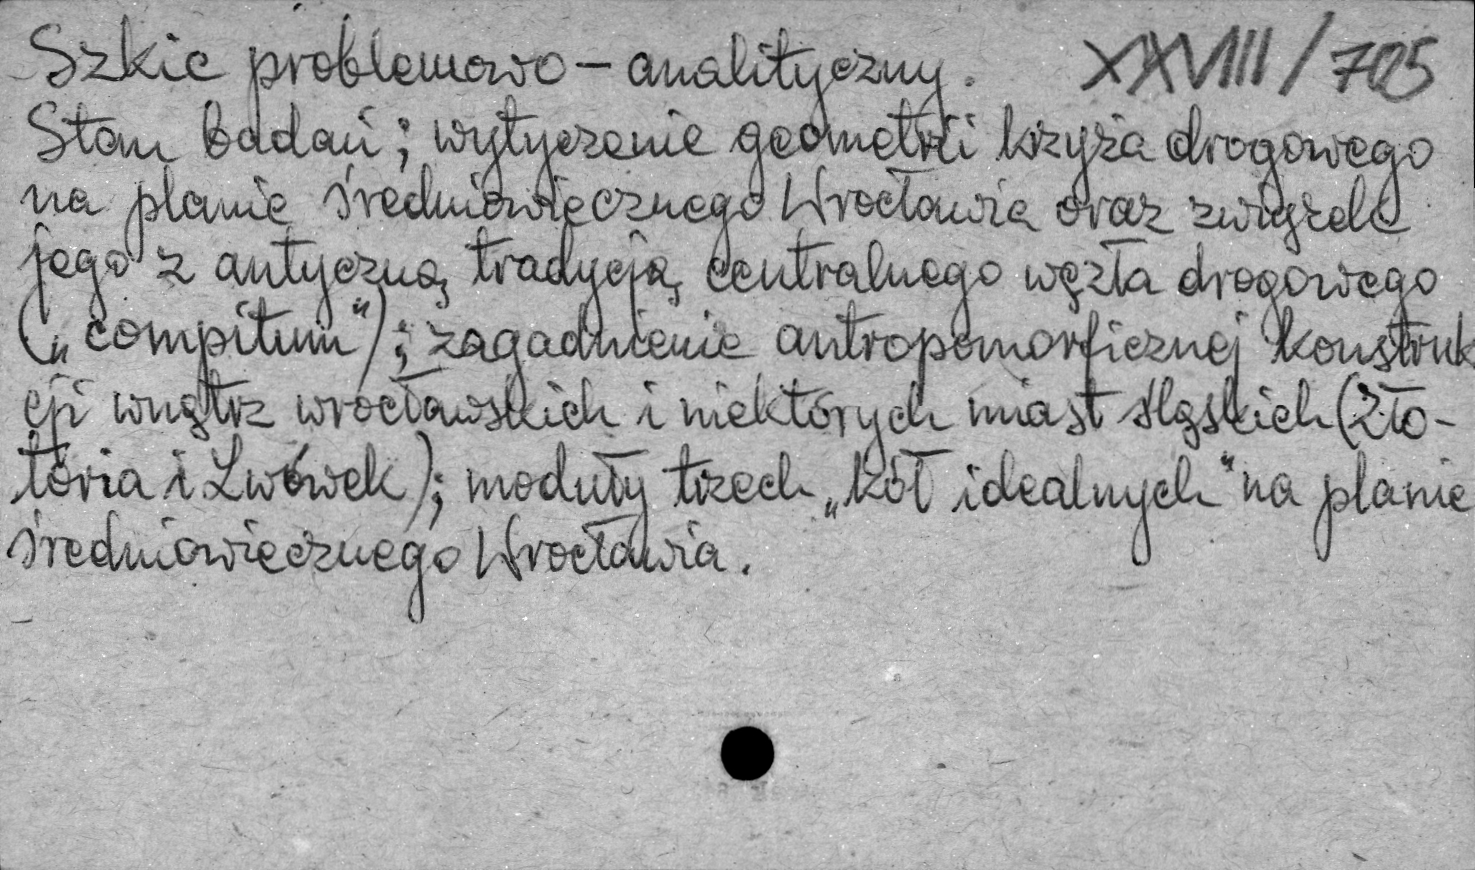 Szkic problemowo – analityczny. XXVIII/705
Stan badań; wytyczenie geometrii krzyża drogowego
na planie średniowiecznego Wrocławia oraz związek
jego z antyczną tradycją centralnego węzła drogowego
(„compitum”); zagadnienie antropomorficznej konstruk
cji wnętrz wrocławskich i niektórych miast śląskich (Zło-
toria i Lwówek); moduły trzech „kół idealnych” na planie
średniowiecznego Wrocławia.